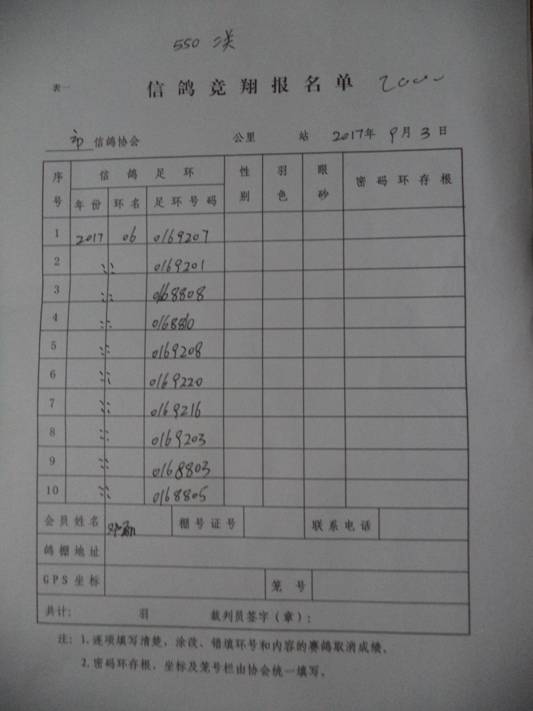 550 汉
表一 信鸽竞翔报名单 2000
市 信鸽协会 公里 站 2017年 9月 3日
序号 信鸽足环 性别 羽色 眼砂 密码环存根
年份 环名 足环号码
1 2017 06 0169207
2 0169201
3 0168808
4 0168810
5 0169208
6 0169220
7 0169216
8 0169203
9 0168803
10 0168805
会员姓名 棚号证号 联系电话
鸽棚地址
GPS坐标 笼号
共计： 羽 裁判员签字（章）：
注：1.逐项填写清楚，涂改、错填环号和内容的赛鸽取消成绩。
2.密码环存根，坐标及笼号栏由协会统一填写。